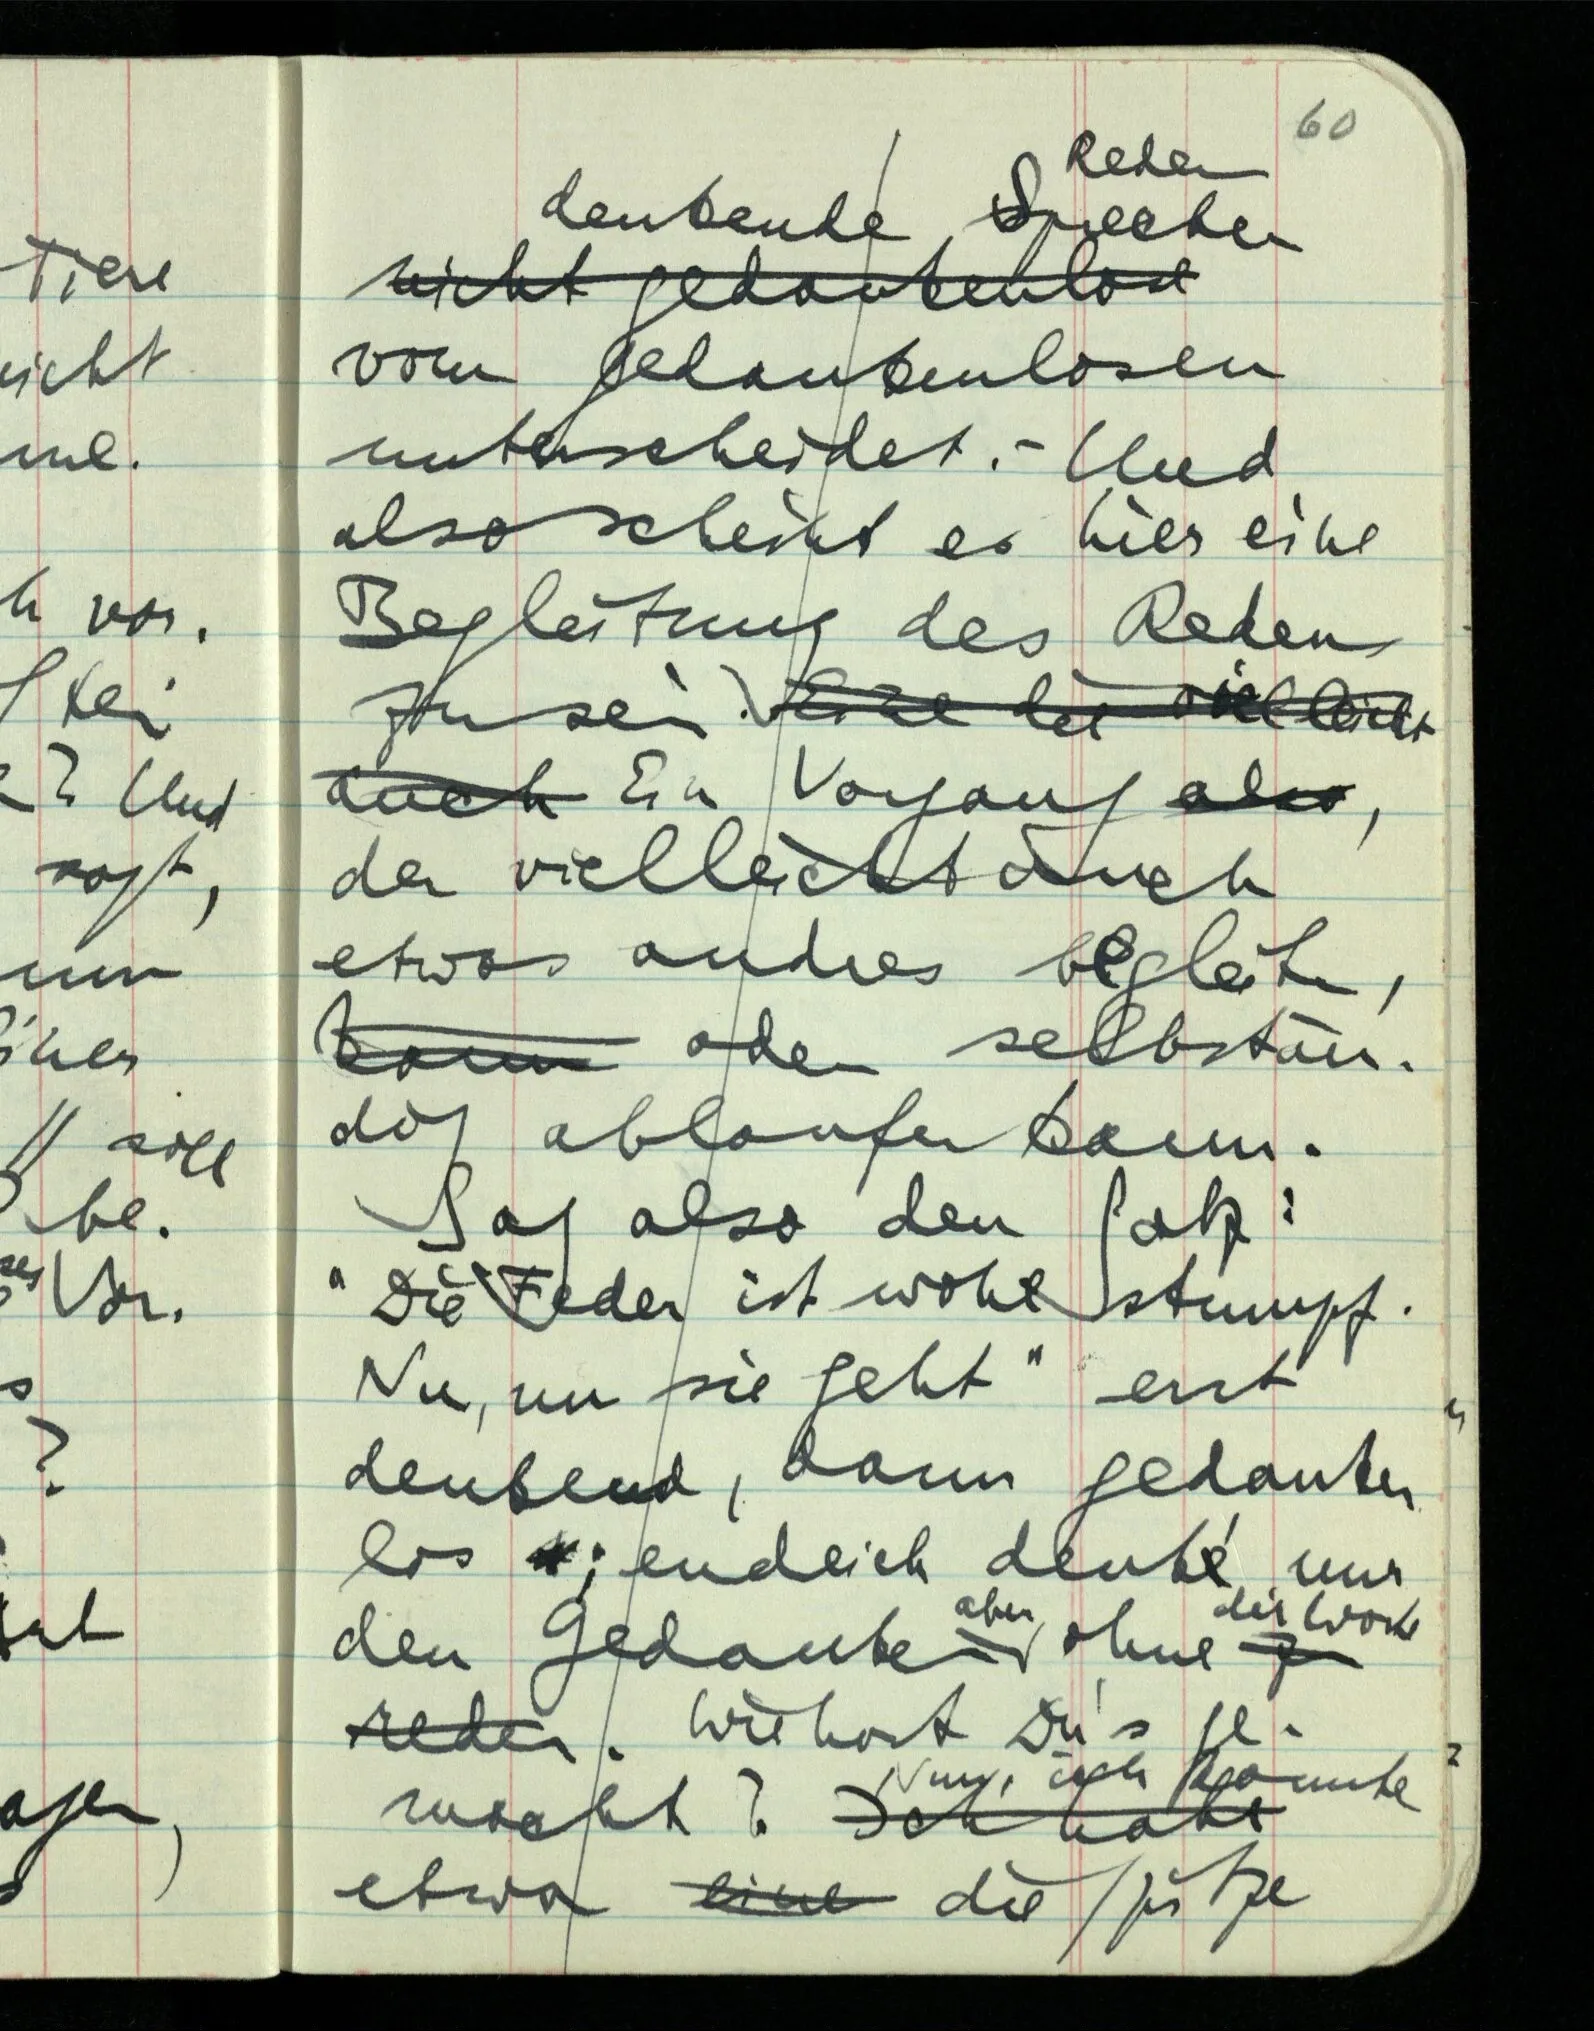 60
Reden
denkende Sprechen
nicht gedankenlose
vom gedankenlosen
unterscheidet. – Und
also scheint es hier eine
Begleitung des Redens
zu sein. Eine die vielleicht
auch Ein Vorgang also,
der vielleicht auch
etwas andres begleiten,
kann oder selbstän-
dig ablaufen kann.
Sag also den Satz:
"Die Feder ist wohl stumpf.
Nu, nu sie geht" erst
denkend, dann gedanken
los ; endlich denke nur
aber die Worte
den Gedanken ohne zu
reden. Wie hast Du's ge-
Nun, ich könnte
macht? Ich habe
etwa eine die Spitze
Tiere
nicht
h vor.
? Und
sagt,
nun
einer
soll
be.
Vor.
?
agen,